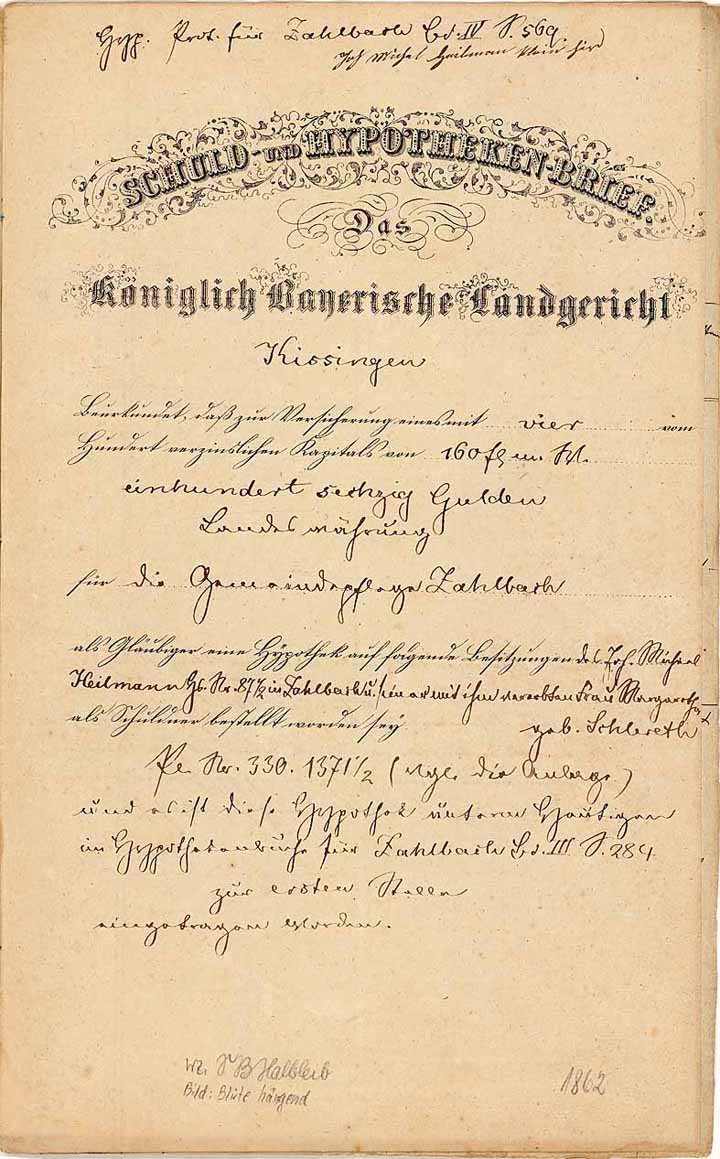 Hyp. Prot. für Zahlbach Bd. IV S. 569.
Joh Michel Heilman
SCHULD- UND HYPOTHEKEN-BRIEF.
Das
Königlich Bayerische Landgericht
Kissingen
Beurkundet, daß zur Versicherung eines mit vier vom
Hundert verzinslichen Kapitals von 160 fl
einhundert sechzig Gulden
Landeswährung
für die Gemeindepflege Zahlbach
als Gläubiger eine Hypothek auf folgende Besitzungen des Joh. Michael
Heilmann Hs. Nr. 87½ in Zahlbach u. mit ihm Frau Margaretha
als Schuldner bestellt worden sey geb. Schlereth
Pl. Nr. 330. 1371½ (vgl. die Anlage)
und es ist diese Hypothek unterm Heutigen
im Hypothekenbuche für Zahlbach Bd. III S. 284
zur ersten Stelle
eingetragen worden.
Wz. Halbleib
Bild: Blüte hängend
1862